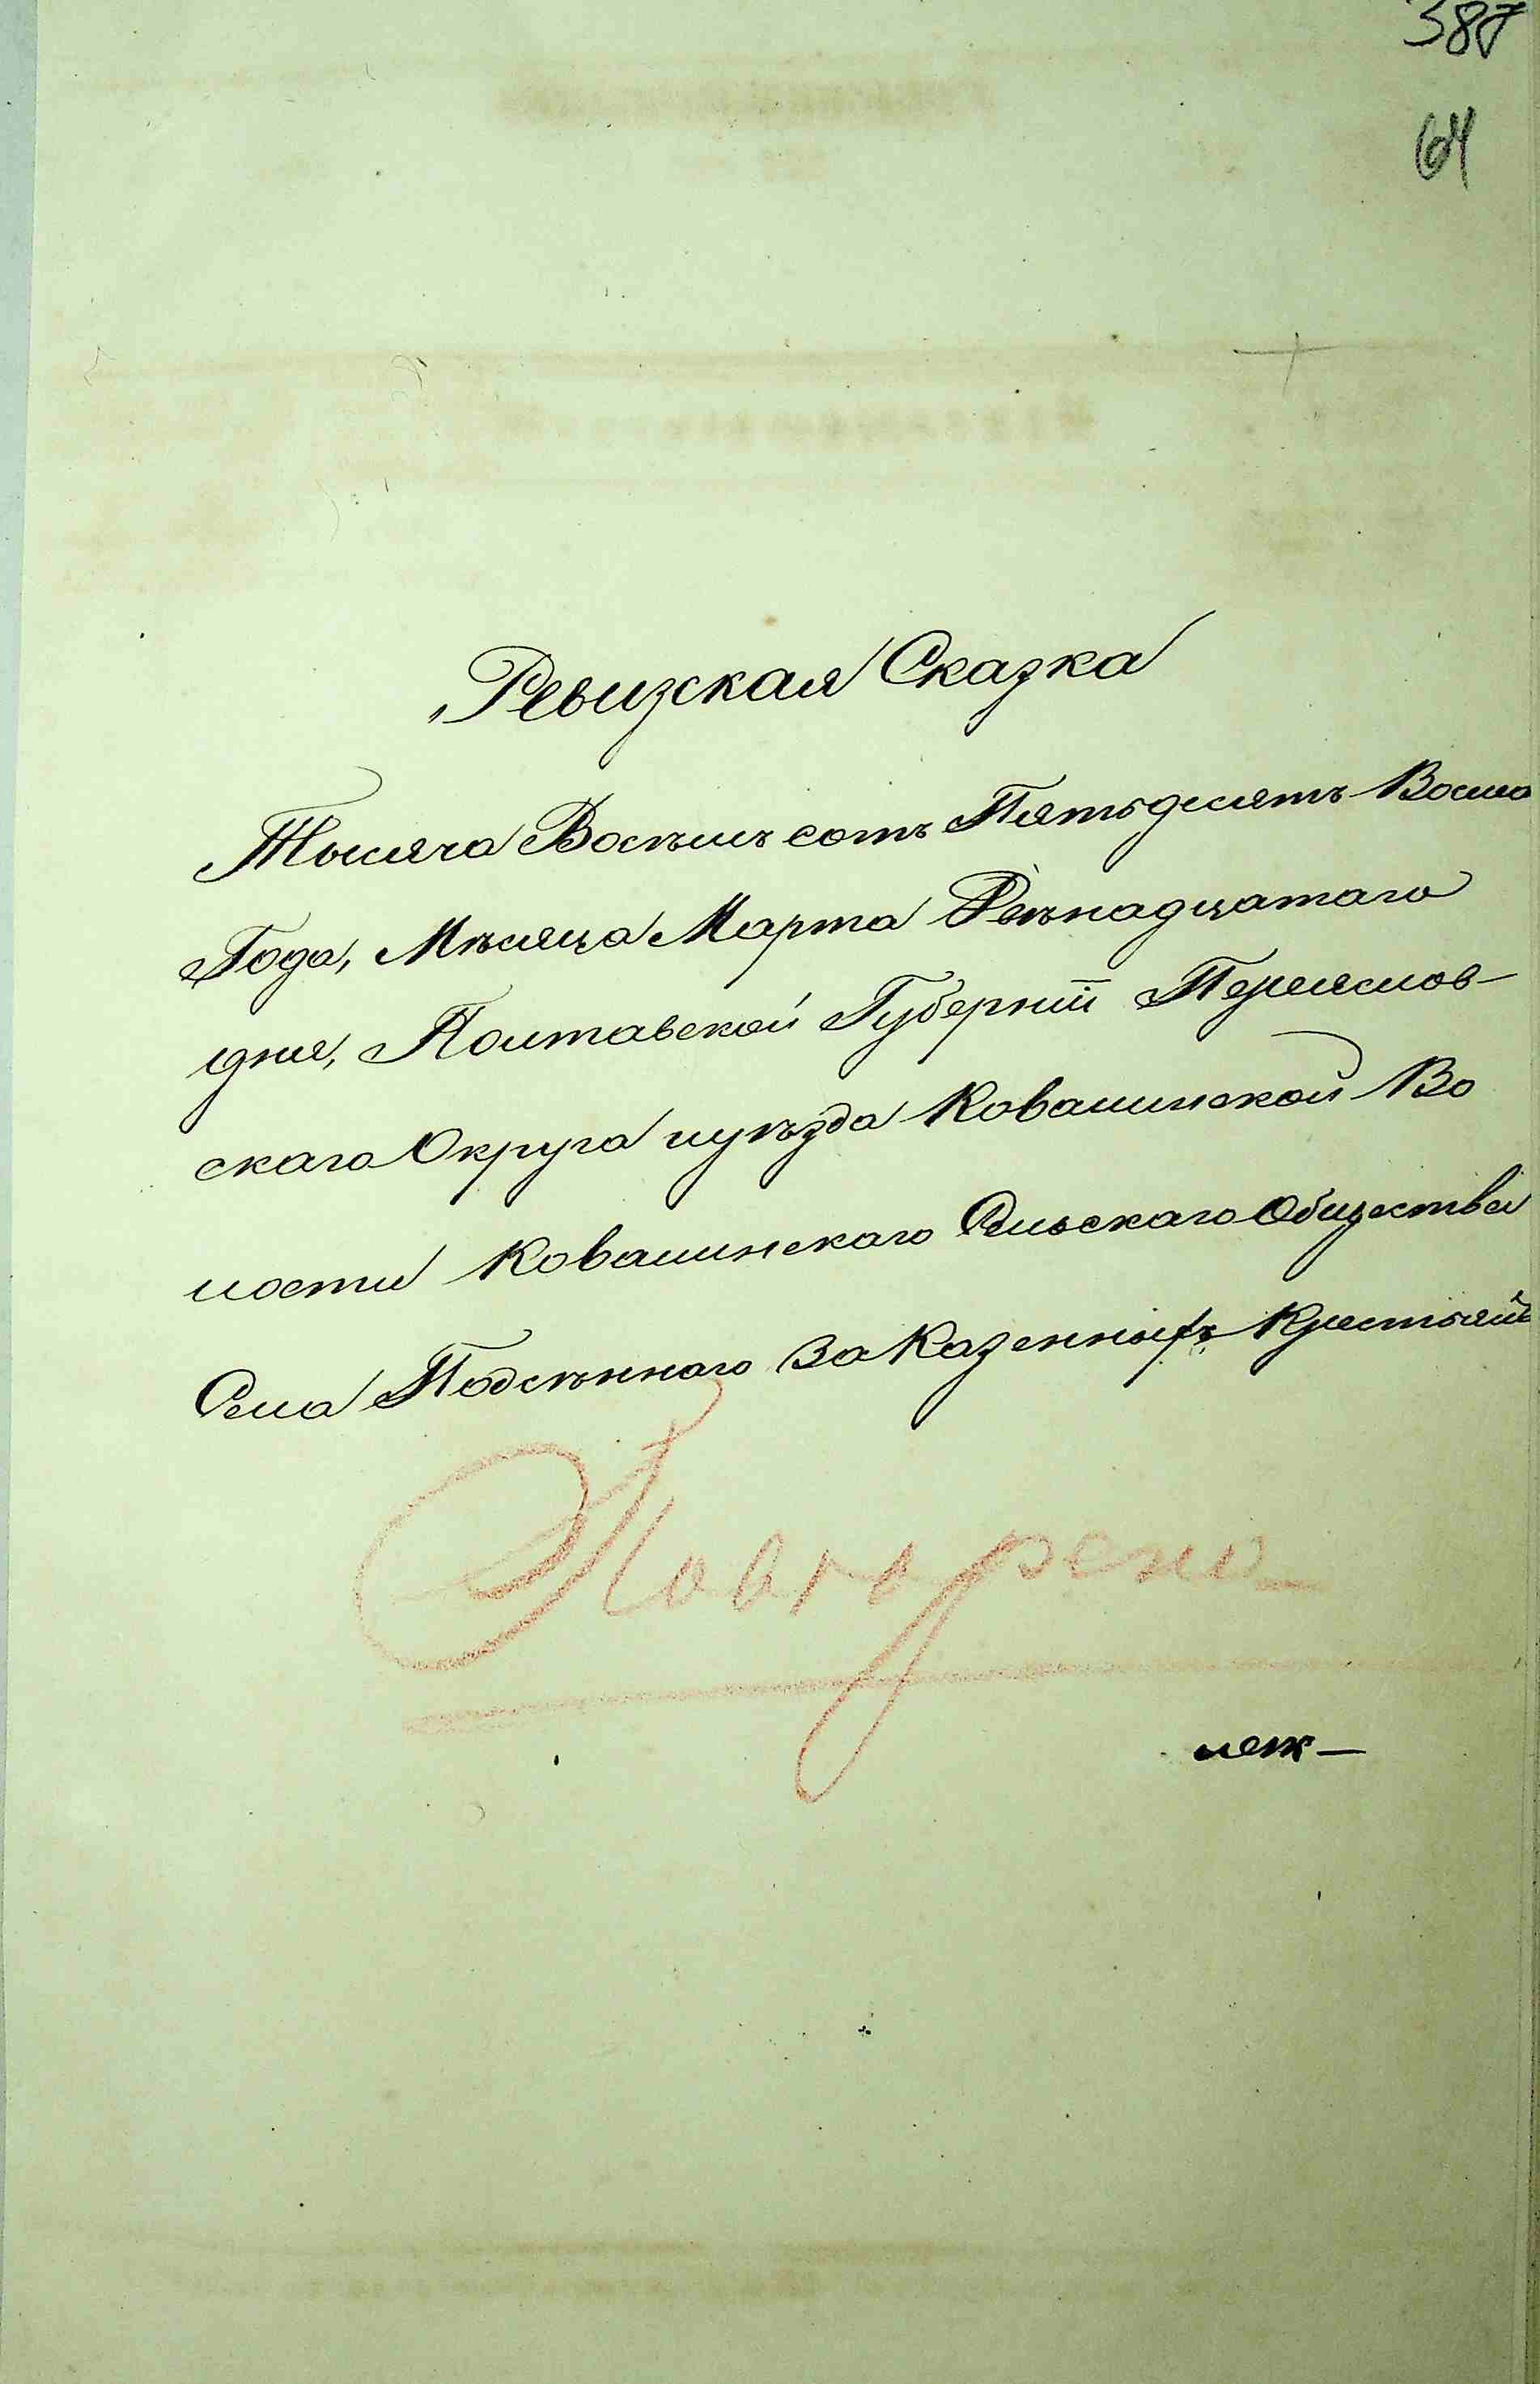 387
64
Ревизская Сказка
Тысяча Восемь сотъ Пятьдесятъ Восмо
Года, Мѣсяца Марта
дня, Полтавской Губерніи Переяслов-
скаго Округа иуѣзда Ковалинской Во
лости Ковалинскаго Сельскаго Общества
Села Подсѣннаго за Казенныхъ Крестьянъ
Повторено